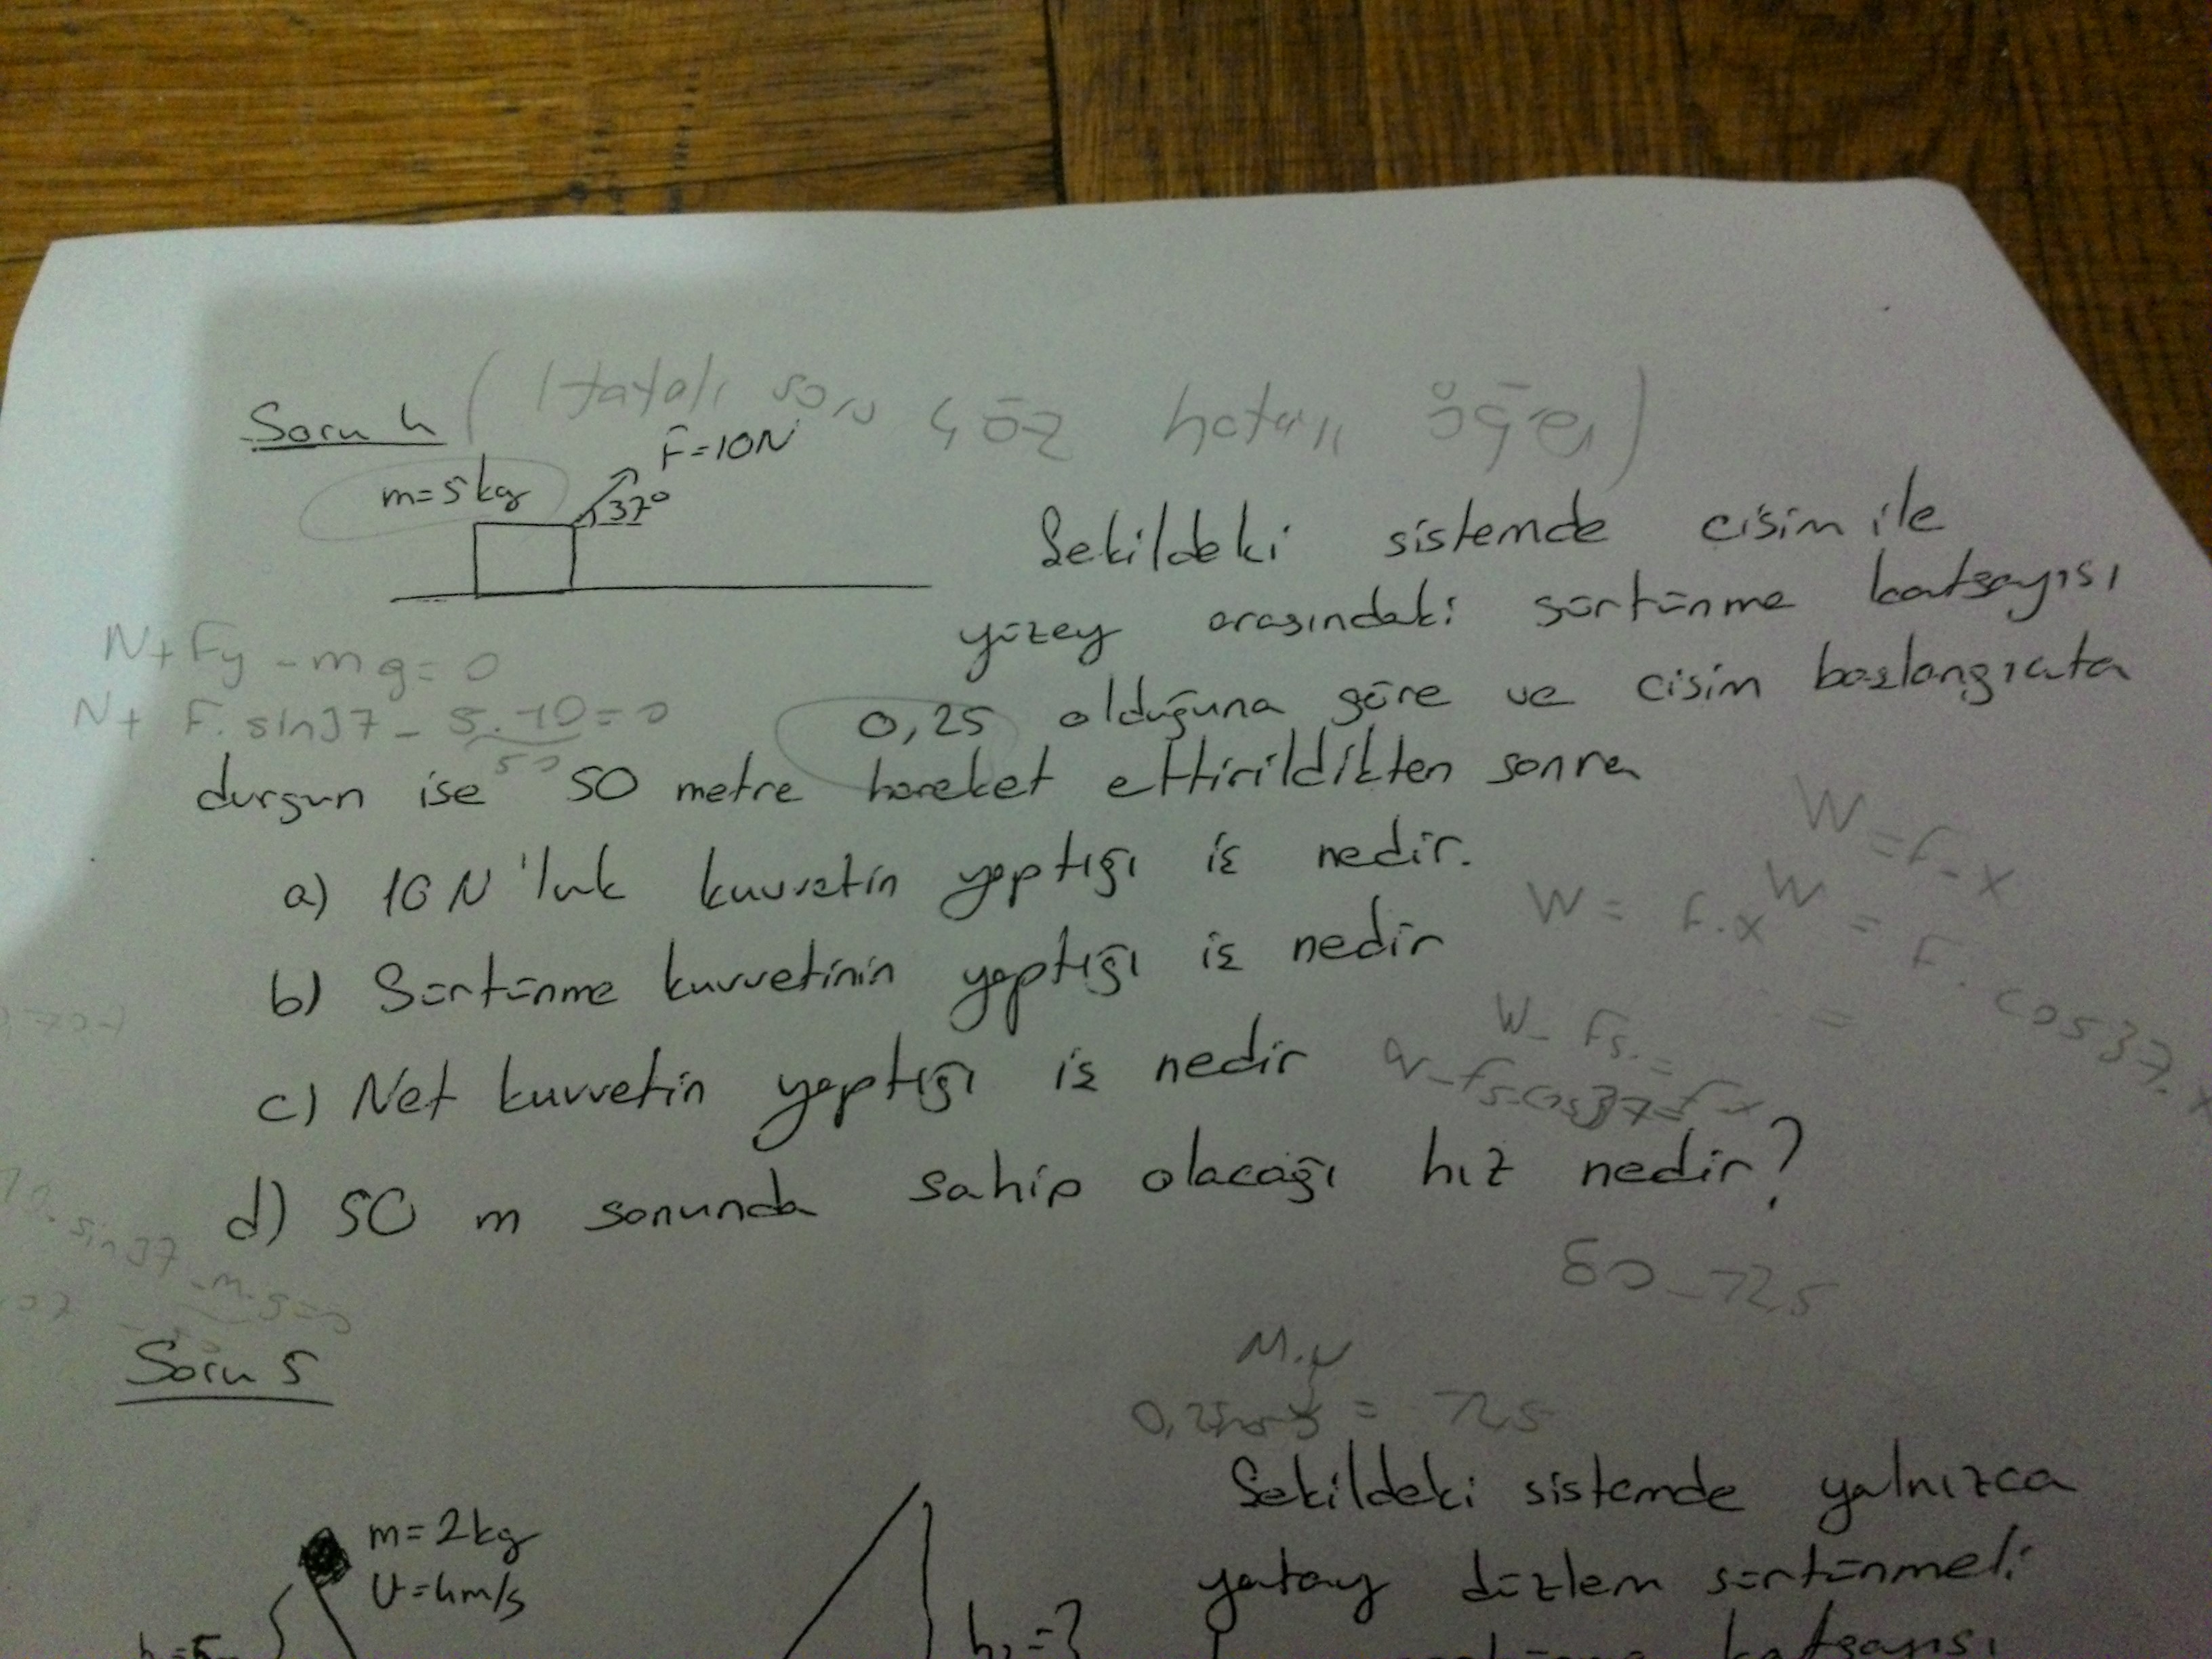 Soru 4 ( Hatalı soru çöz hatayı öğren)
F=10N
m=5kg
37°
Şekildeki sistemde cisim ile
yüzey arasındaki sürtünme katsayısı
N+Fy-mg=0
N+ F.sin37- 5.10=0
50
0,25 olduğuna göre ve cisim başlangıçta
durgun ise 50 metre hareket ettirildikten sonra
a) 10N'luk kuvvetin yaptığı iş nedir.
W=F.x
W= F.x
W = F. cos37.x
b) Sürtünme kuvvetinin yaptığı iş nedir
W- Fs.=
c) Net kuvvetin yaptığı iş nedir
d) 50 m sonunda sahip olacağı hız nedir?
sin37 -m.g=0
50-12,5
Soru 5
M.N
= 12,5
Şekildeki sistemde yalnızca
m=2kg
V=4m/s
yatay düzlem sürtünmeli
h=5
h₂=?
katsayısı